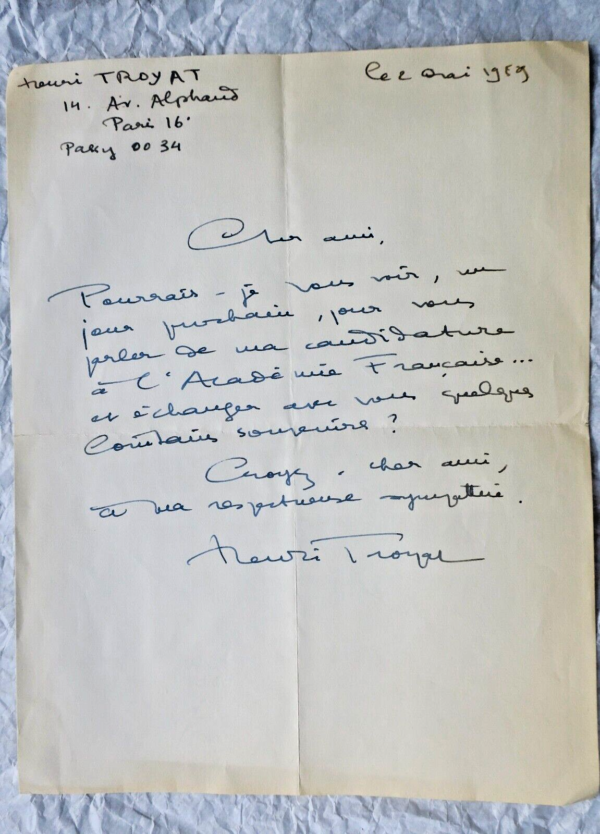 Henri TROYAT
14. Av. Alphand
Paris 16.
Passy 00 34
le 2 mai 1959
Cher ami,
Pourrais-je vous voir, un
jour prochain, pour vous
parler de ma candidature
à l'Académie Française...
et échanger avec vous quelques
lointains souvenirs?
Croyez, cher ami,
à ma respectueuse sympathie.
Henri Troyat